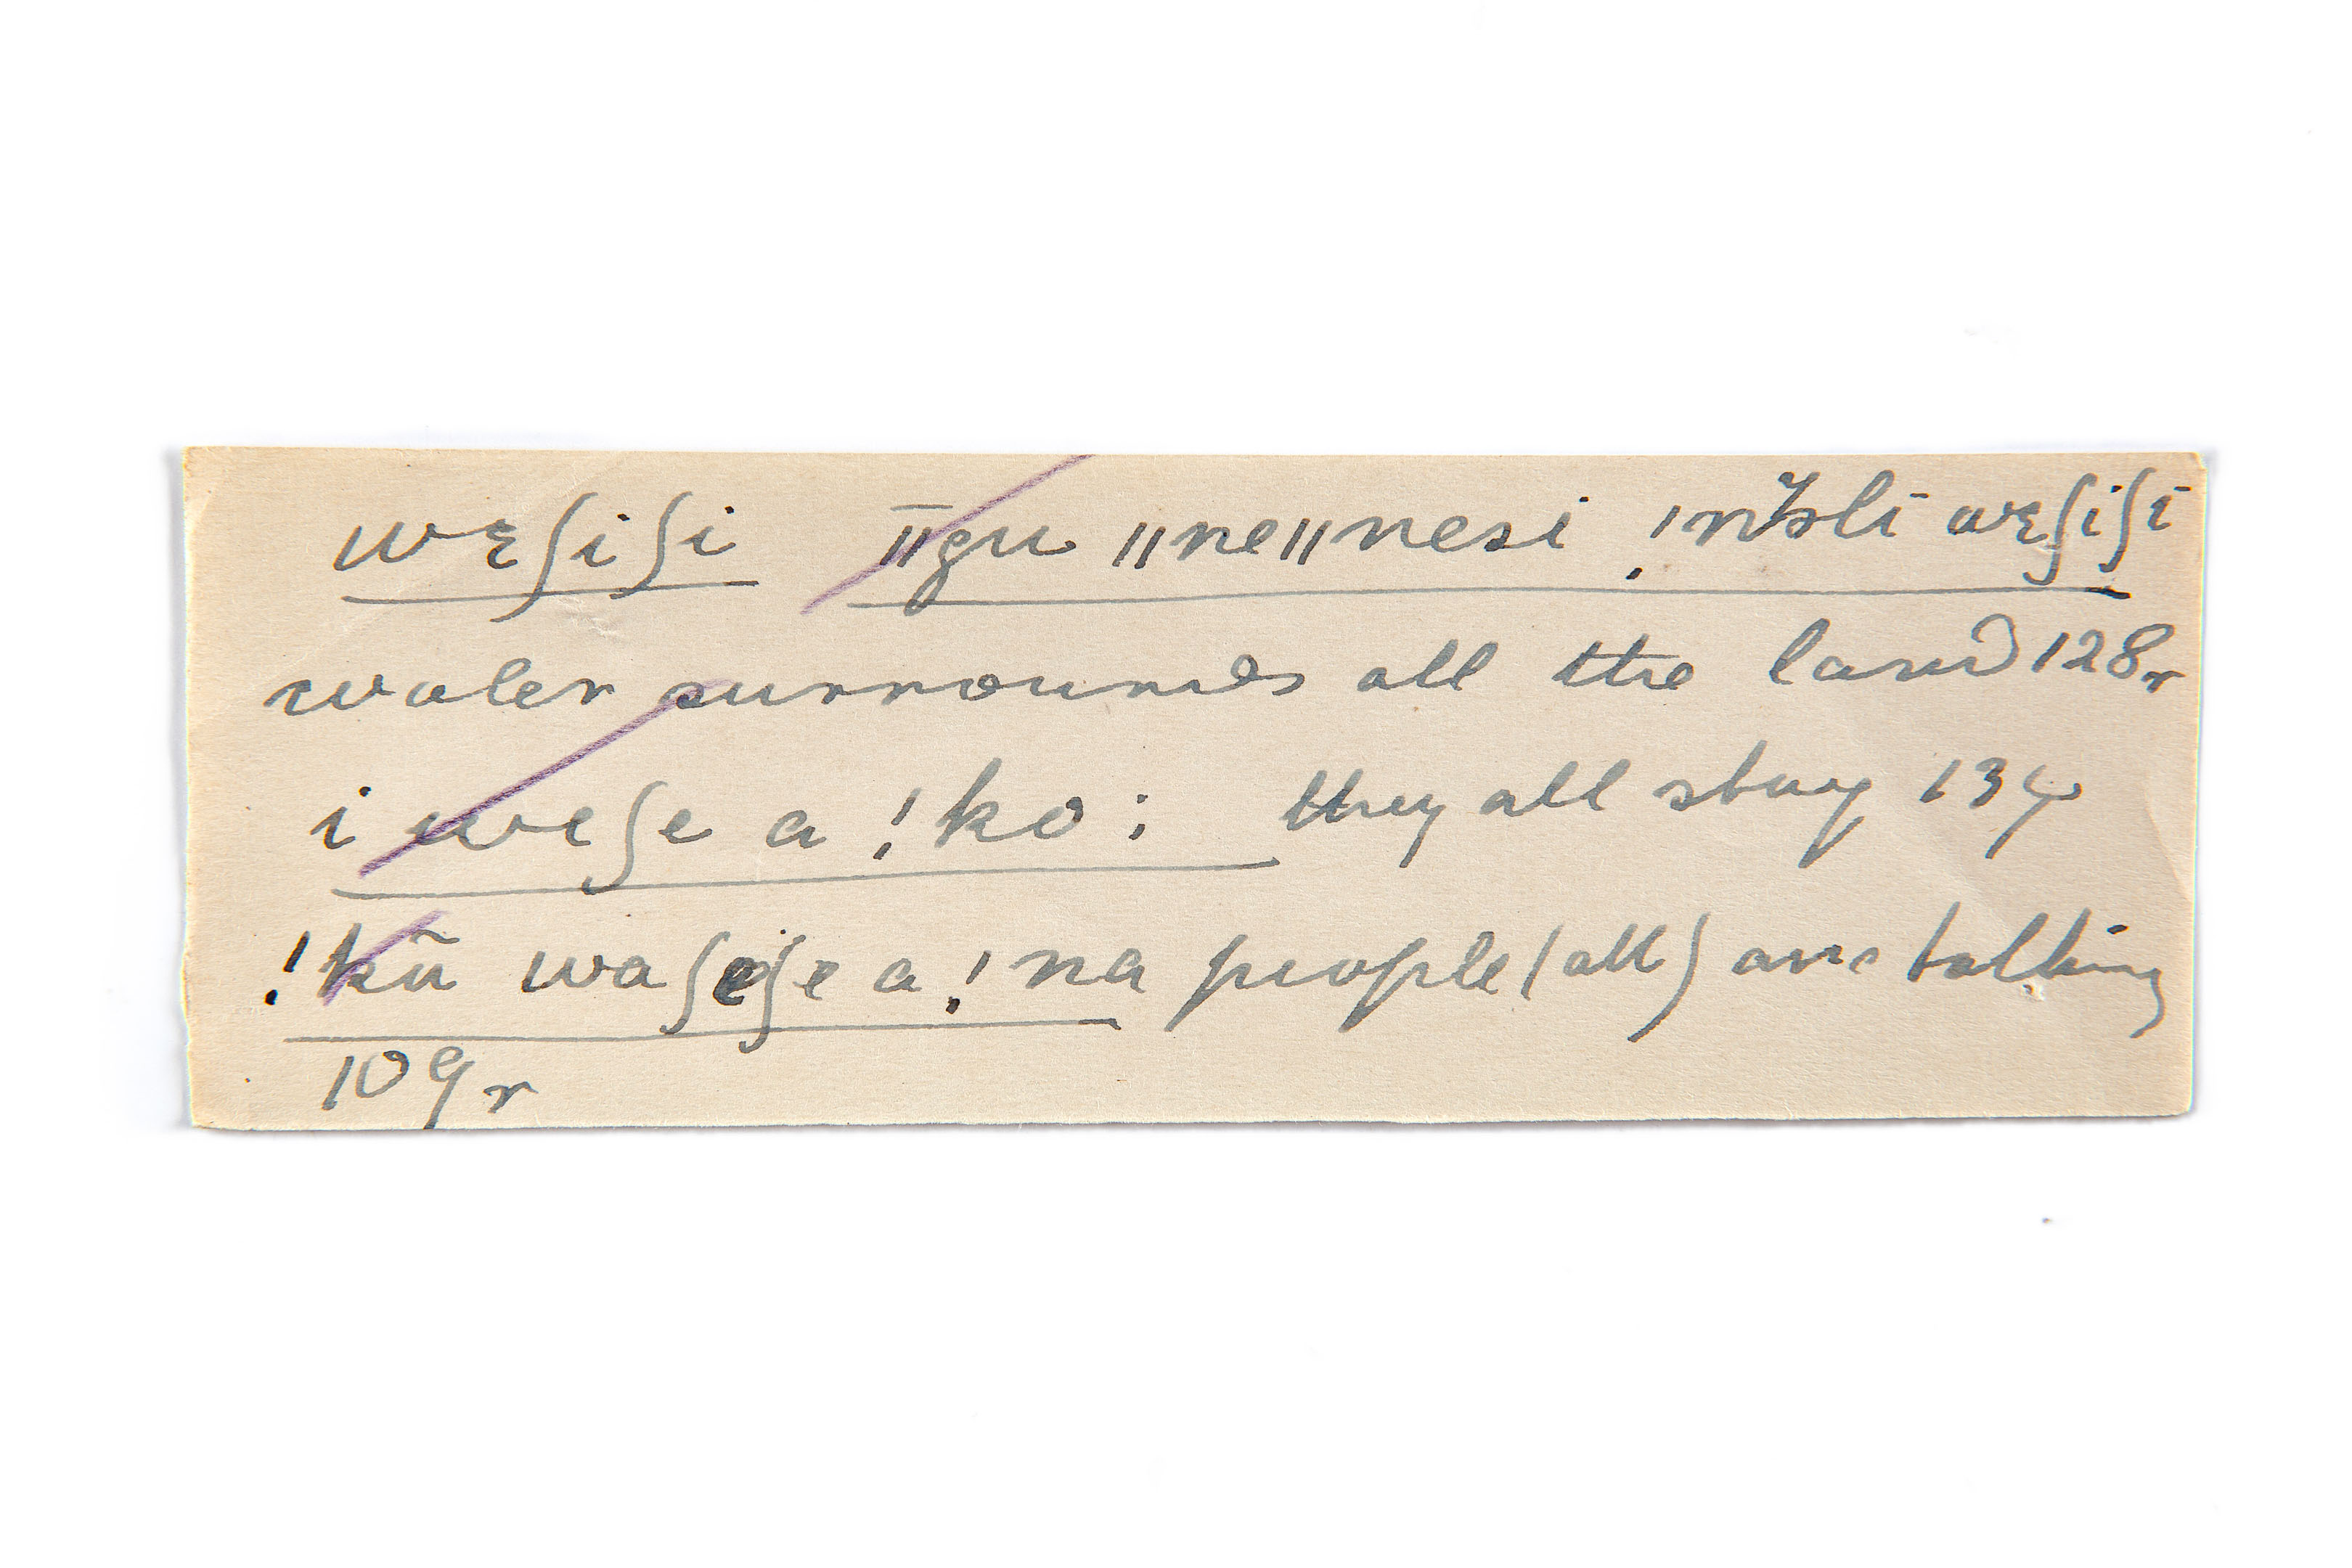 wɛʃiʃi ǁgu ǁneǁnesi !nɔ̆li wɛʃiʃi
water surrounds all the land 128r
i weʃe a !ko: they all stay 134
!kũ waʃeʃe a !na people (all) are talking
109r